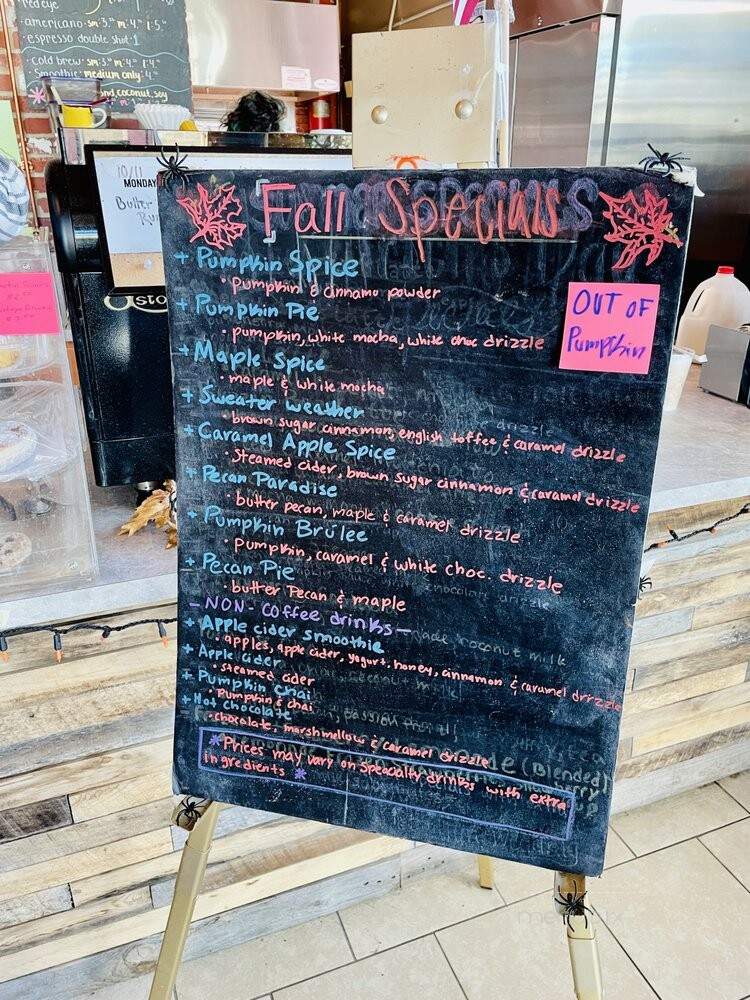 red eye
-americano: sm:3.⁰⁰ m:4.⁰⁰ l:5.⁰⁰
-espresso double shot-1
-cold brew: sm:3.⁰⁰ m:4.⁰⁰ l:4.⁰⁰
-Smoothie: medium only:4.⁰⁰
coconut, soy
10/11
MONDAY
Butter
Fall Specials
+ Pumpkin Spice
• Pumpkin & cinnamo powder
+ Pumpkin Pie
• pumpkin, white mocha, white choc drizzle
OUT OF
Pumpkin
+ Maple Spice
• maple & white mocha
+ Sweater weather
• brown sugar cinnamon, english toffee & caramel drizzle
+ Caramel Apple Spice
• Steamed cider, brown sugar cinnamon & caramel drizzle
+ Pecan Paradise
• butter pecan, maple & caramel drizzle
+ Pumpkin Brulee
• Pumpkin, caramel & white choc. drizzle
+ Pecan Pie
• butter Pecan & maple
- NON- Coffee drinks -
+ Apple cider smoothie
• apples, apple cider, yogurt, honey, cinnamon & caramel drizzle
+ Apple cider
• steamed cider
+ Pumpkin Chai
• Pumpkin & chai
+ Hot chocolate
• chocolate, marshmellow & caramel drizzle
* Prices may vary on specialty drinks with extra
ingredients *